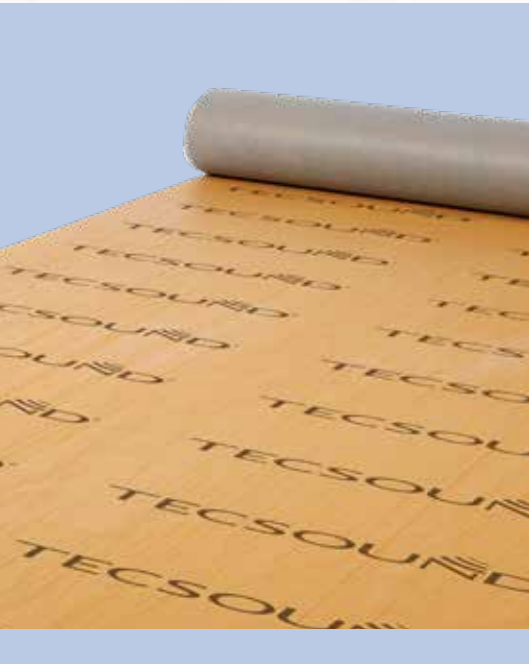 TECSOUND
TECSOUND
TECSOUND
TECSOUND
TECSOUND
TECSOUND
TECSOU
TECSOUN
TECSOUND
TECSOU